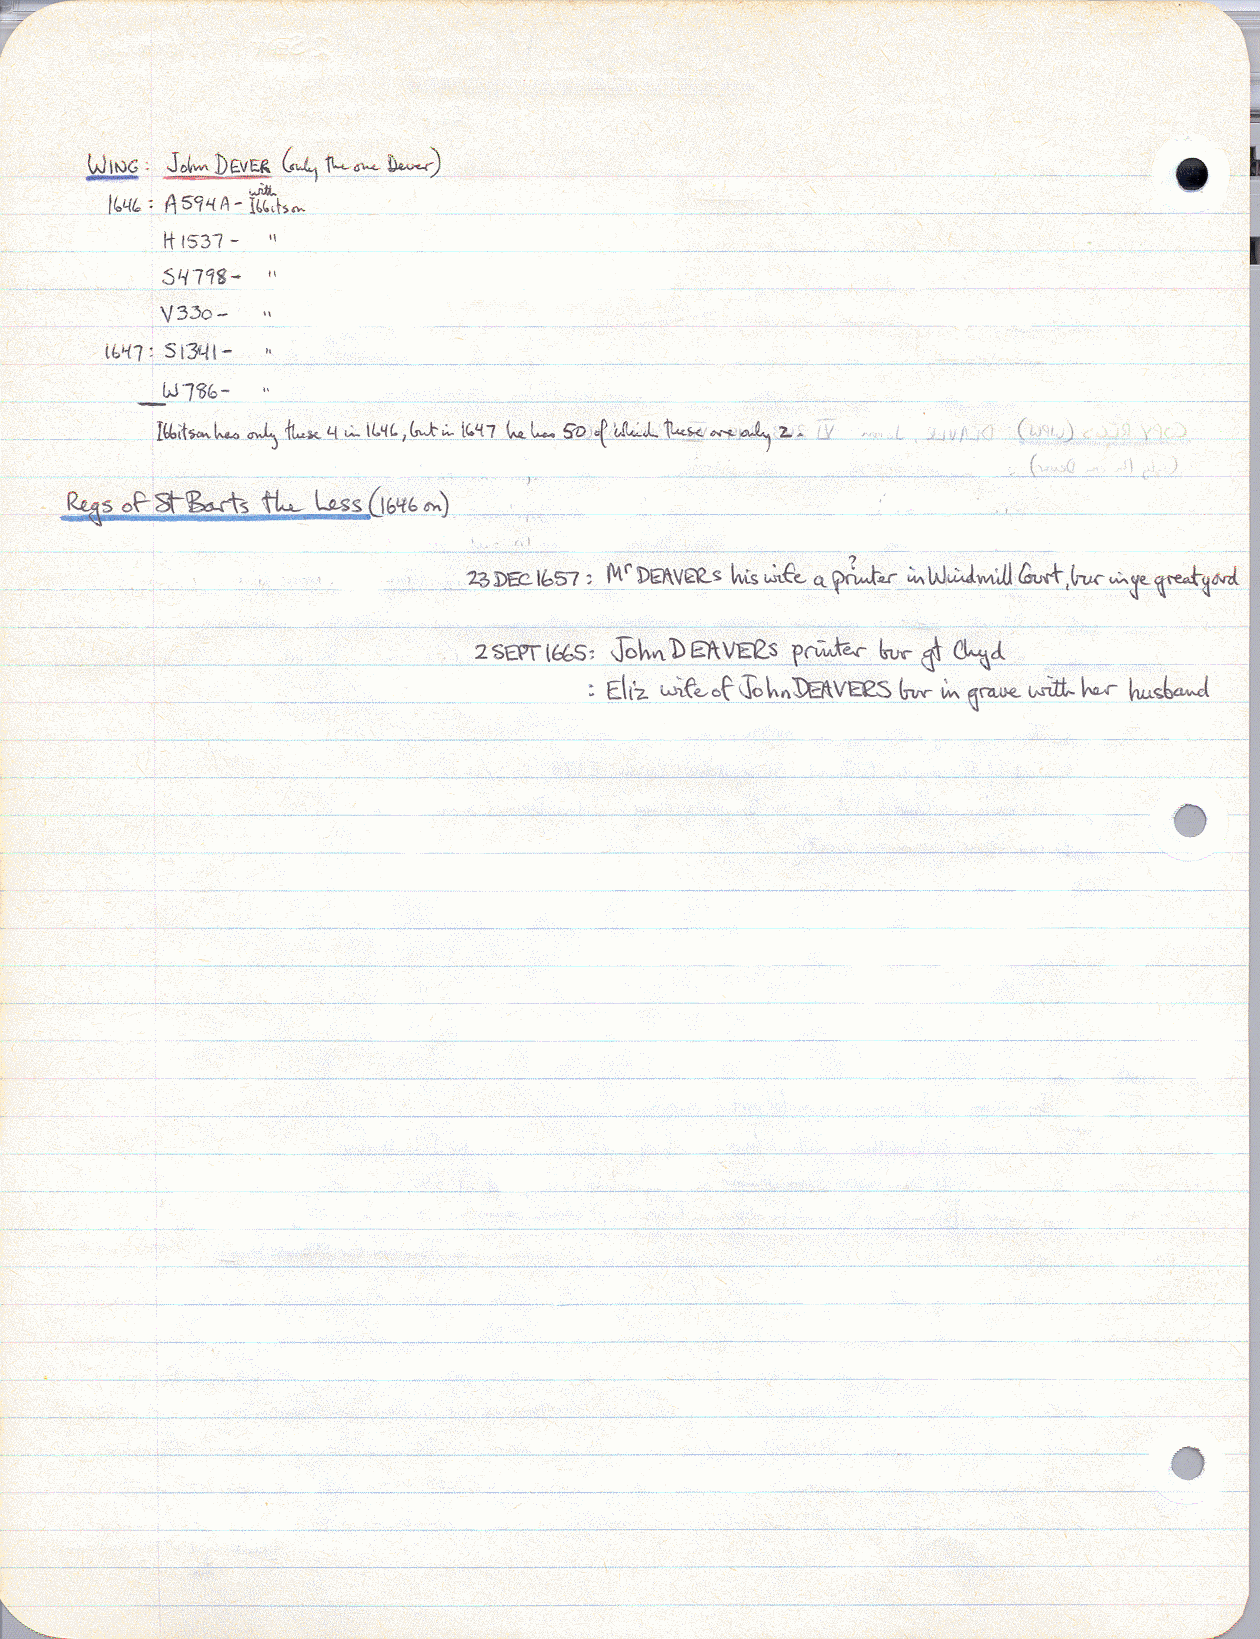 WING: John DEVER (only the one Dever)
1646: A594A- with Ibbitson
H1537- "
S4798- "
V330- "
1647: S1341- "
W786- "
Ibbitson has only these 4 in 1646, but in 1647 he has 50 of which these are only 2.
Regs of St Barts the Less (1646 on)
23 DEC 1657: Mr DEAVERS his wife a ? printer in Windmill Court, bur in ye great yard
2 SEPT 1665: John DEAVERS printer bur gt Chyd
: Eliz wife of John DEAVERS bur in grave with her husband